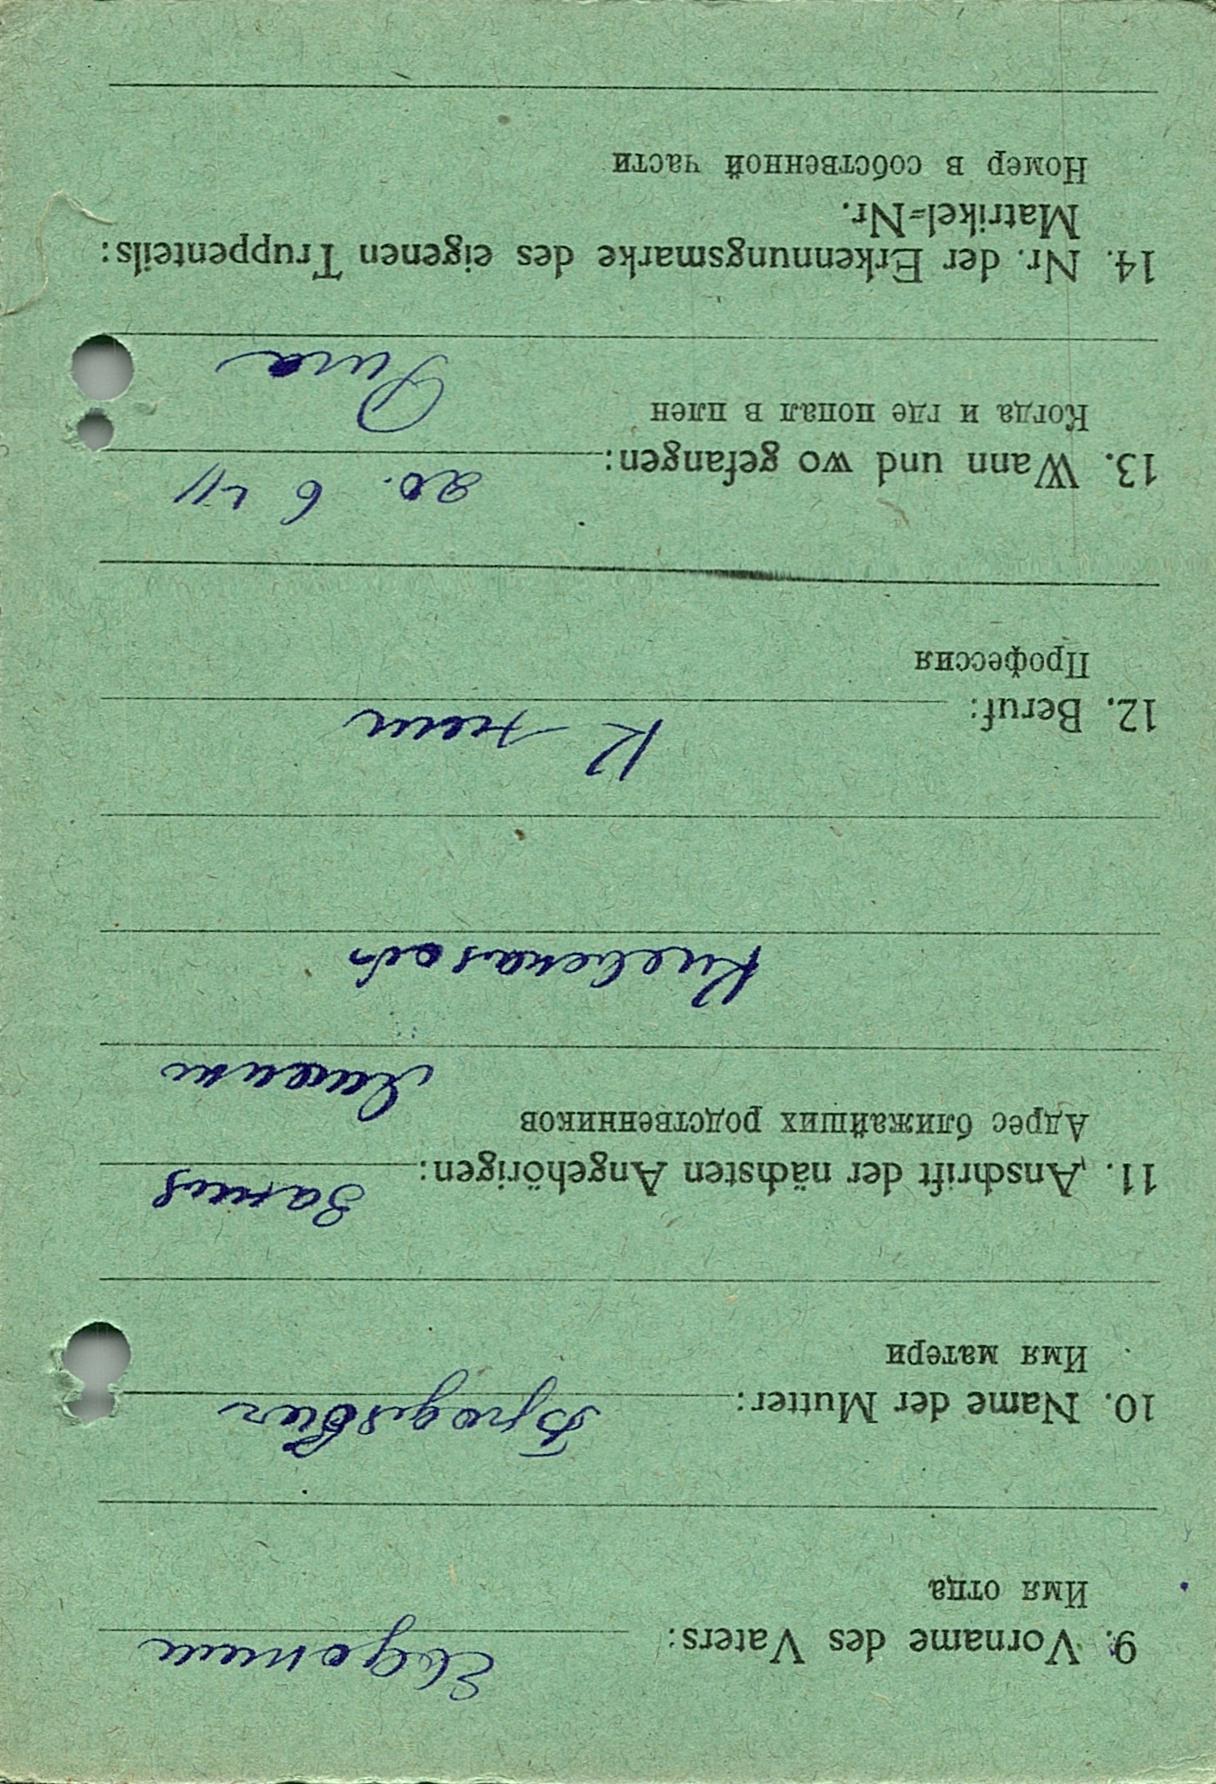 9. Vorname des Vaters: Евдоким
Имя отца
10. Name der Mutter:
Имя матери
11. Anschrift der nächsten Angehörigen:
Адрес ближайших родственников
12. Beruf:
Профессия
13. Wann und wo gefangen: 20. 6 41
Когда и где попал в плен
Рига
14. Nr. der Erkennungsmarke des eigenen Truppenteils:
Matrikel=Nr.
Номер в собственной части